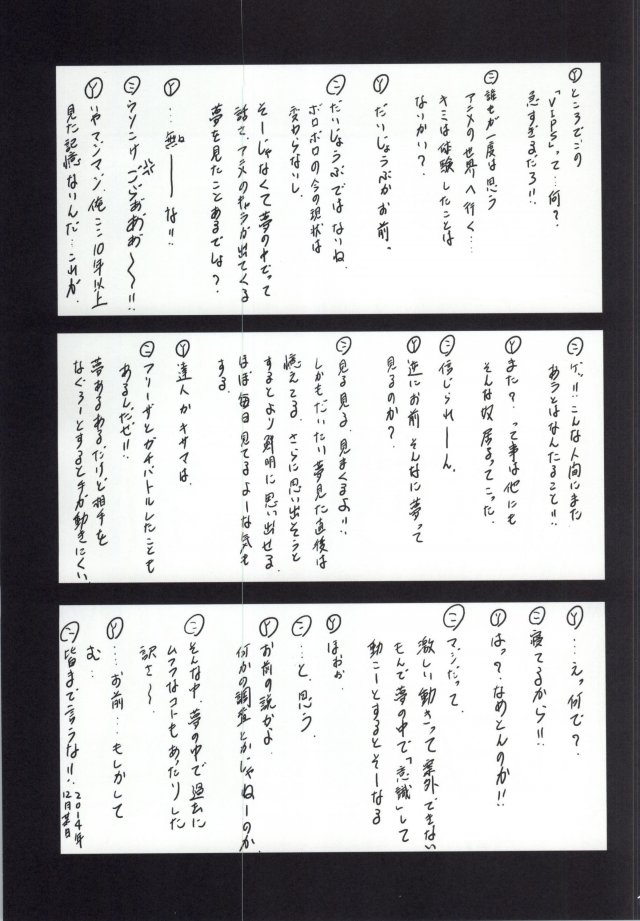 Ⓨところでこの
「VIPS」って…何?
急すぎるだろ!!
㊁誰もが一度は思う
アニメの世界へ行く……
キミは体験したことは
ないかい?
Ⓨだいじょうぶかお前。
㊁だいじょうぶではないね。
ボロボロの今の現状は
変わらないし
そーじゃなくて夢の中でって
話で、アニメのキャラが出てくる
夢を見たことあるでしょ?
Ⓨ…無ーーな!!
㊁ウソこけ ごらぁぁぁ〜〜!!
Ⓨいやマンマン、俺ここ10年以上
見た記憶ないんだ…これが。
㊁ゲ!!こんな人間にまた
あうとはなんたること!!
Ⓨまた?って事は他にも
そんな奴居るってこった。
㊁信じられーーん。
Ⓨ逆にお前そんなに夢って
見るのか?
㊁見る見る、見まくるよ!!
しかもだいたい夢見た直後は
憶えてる。さらに思い出そうと
するとより鮮明に思い出せる。
ほぼ毎日見てるよーな気も
する。
Ⓨ達人かキサマは。
㊁フリーザとガチバトルしたことも
あるしだぜ!!
夢あるあるだけど相手を
なぐろーとすると手が動きにくい
Ⓨ…えっ何で?
㊁寝てるから!!
Ⓨはっ?なめとんのか!!
㊁マジだって、
激しい動きって案外できない
もんで夢の中で「意識」して
動こーとするとそーなる
Ⓨほぉぉ
㊁…と、思う。
Ⓨお前の説かよ
何かの調査とかじゃねーのか。
㊁そんな中、夢の中で過去に
ムフフなコトもあったりした
訳さ〜。
Ⓨ……お前…もしかして
む…
㊁皆まで言うな!!
2014年
12月某日